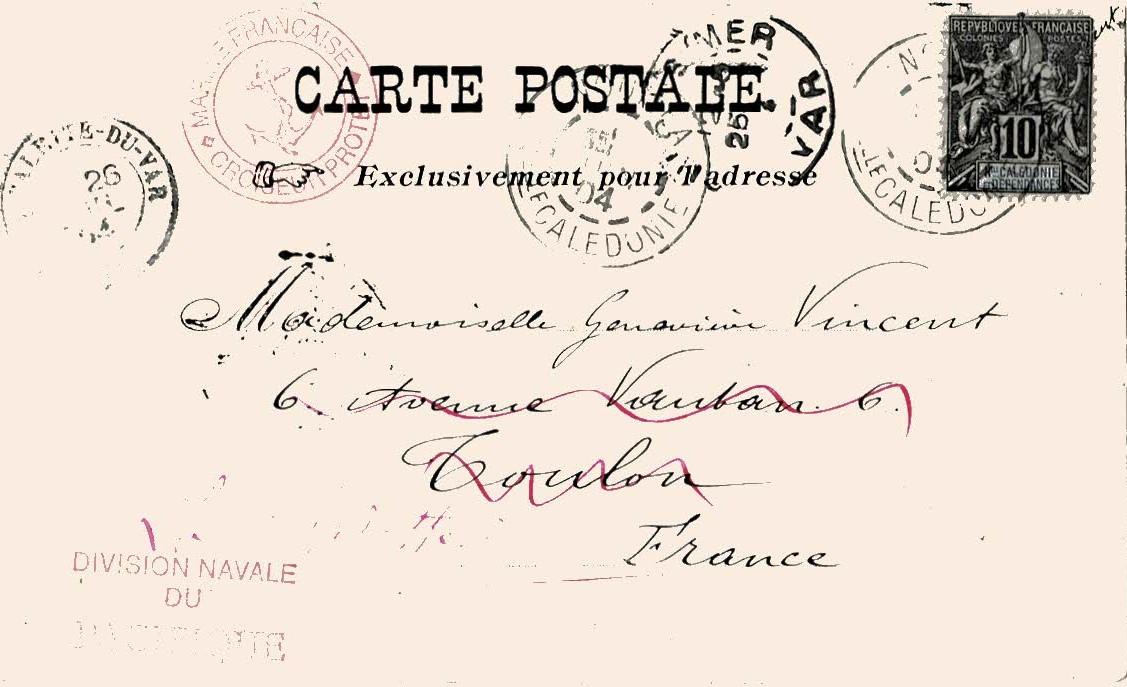 REPVBLIQVE FRANÇAISE
COLONIES POSTES
10
Nlle CALEDONIE
ET DÉPENDANCES
MARINE FRANÇAISE
CARTE POSTALE.
Exclusivement pour l'adresse
MER
25
VAR
04
CALEDONIE
NO
CALEDO
VALETTE-DU-VAR
26
Mademoiselle Geneviève Vincent
6. Avenue Vauban. 6.
Toulon
France
DIVISION NAVALE
DU
PACIFIQUE